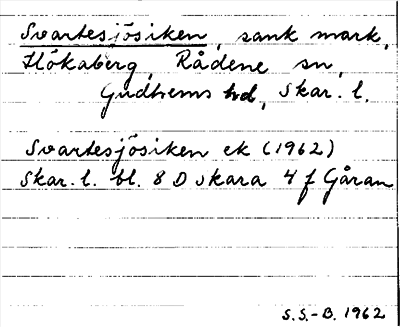 Svartesjösiken, sank mark,
Hökaberg, Rådene sn,
Gudhems hd, Skar. l.
Svartesjösiken ek (1962)
Skar. l. bl. 8 D Skara 4 f Gåran
S.S.-B. 1962